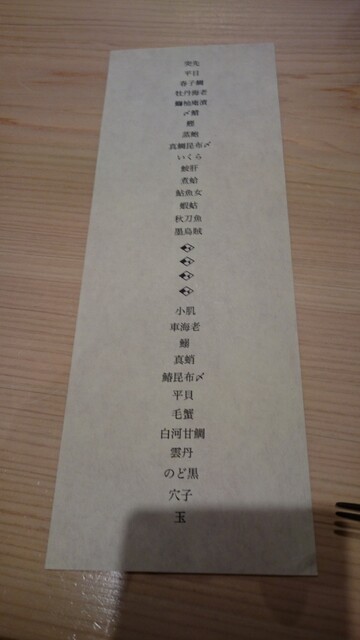 突先
平目
春子鯛
牡丹海老
〆鯖
鰹
蒸鮑
真鯛昆布〆
いくら
鮟肝
煮蛤
鮎魚女
蝦蛄
秋刀魚
墨烏賊
小肌
車海老
真蛸
鰆昆布〆
平貝
毛蟹
白河甘鯛
雲丹
のど黒
穴子
玉